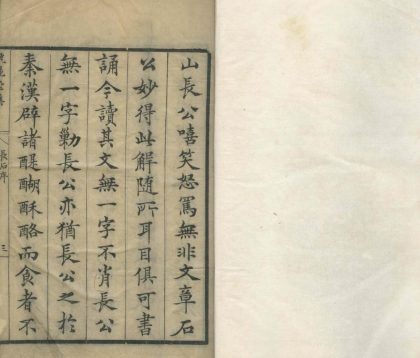 山長公嘻笑怒罵無非文章石
公妙得此解隨所耳目俱可書
誦今讀其文無一字不肖長公
無一字勦長公亦猶長公之於
秦漢辟諸醍醐酥酪而食者不
三